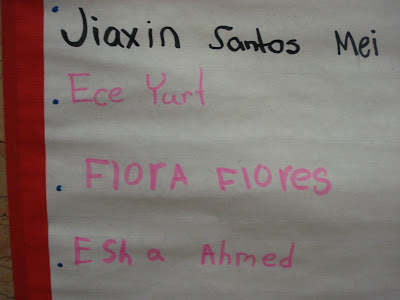 Jiaxin Santos Mei
Ece Yurt
FlorA Flores
ESha Ahmed